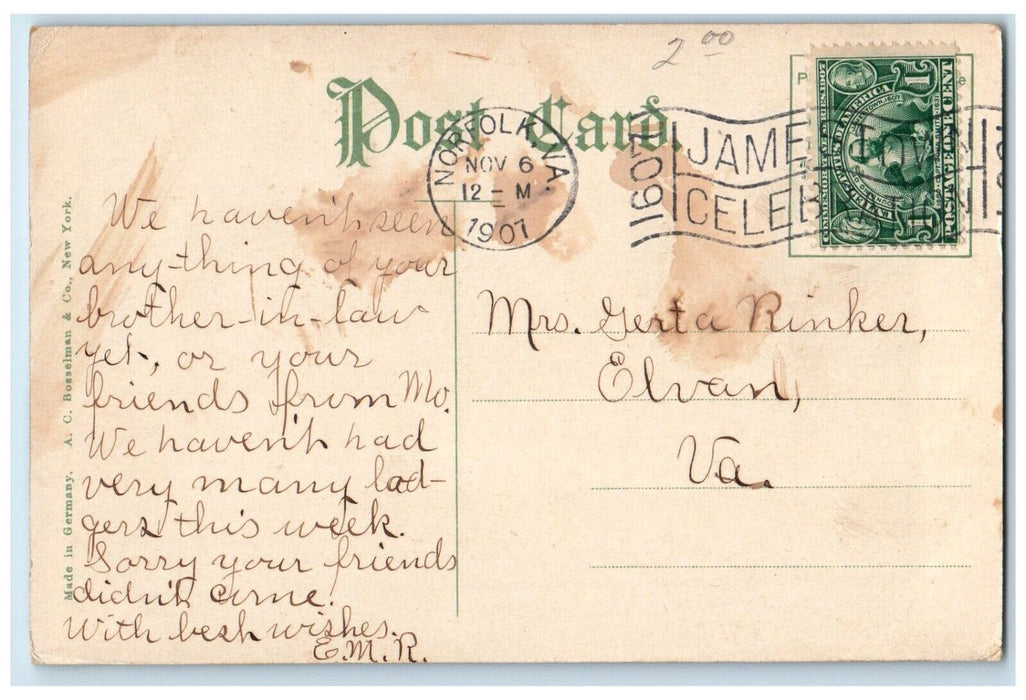 2.00
Post Card.
NORFOLK, VA.
NOV 6
12-M
1907
1607-1907
JAME
CELEB
COMMEMORATIVE SERIES 1907
UNITED STATES OF AMERICA
POSTAGE ONE CENT
1
1
We haven't seen
any-thing of your
brother-in-law
yet, or your
friends from Mo.
We haven't had
very many lod-
gers this week.
Sorry your friends
didn't come.
With best wishes.
E.M.R.
Mrs. Gerta Rinker,
Elvan,
Va.
Made in Germany. A. C. Bosselman & Co., New York.